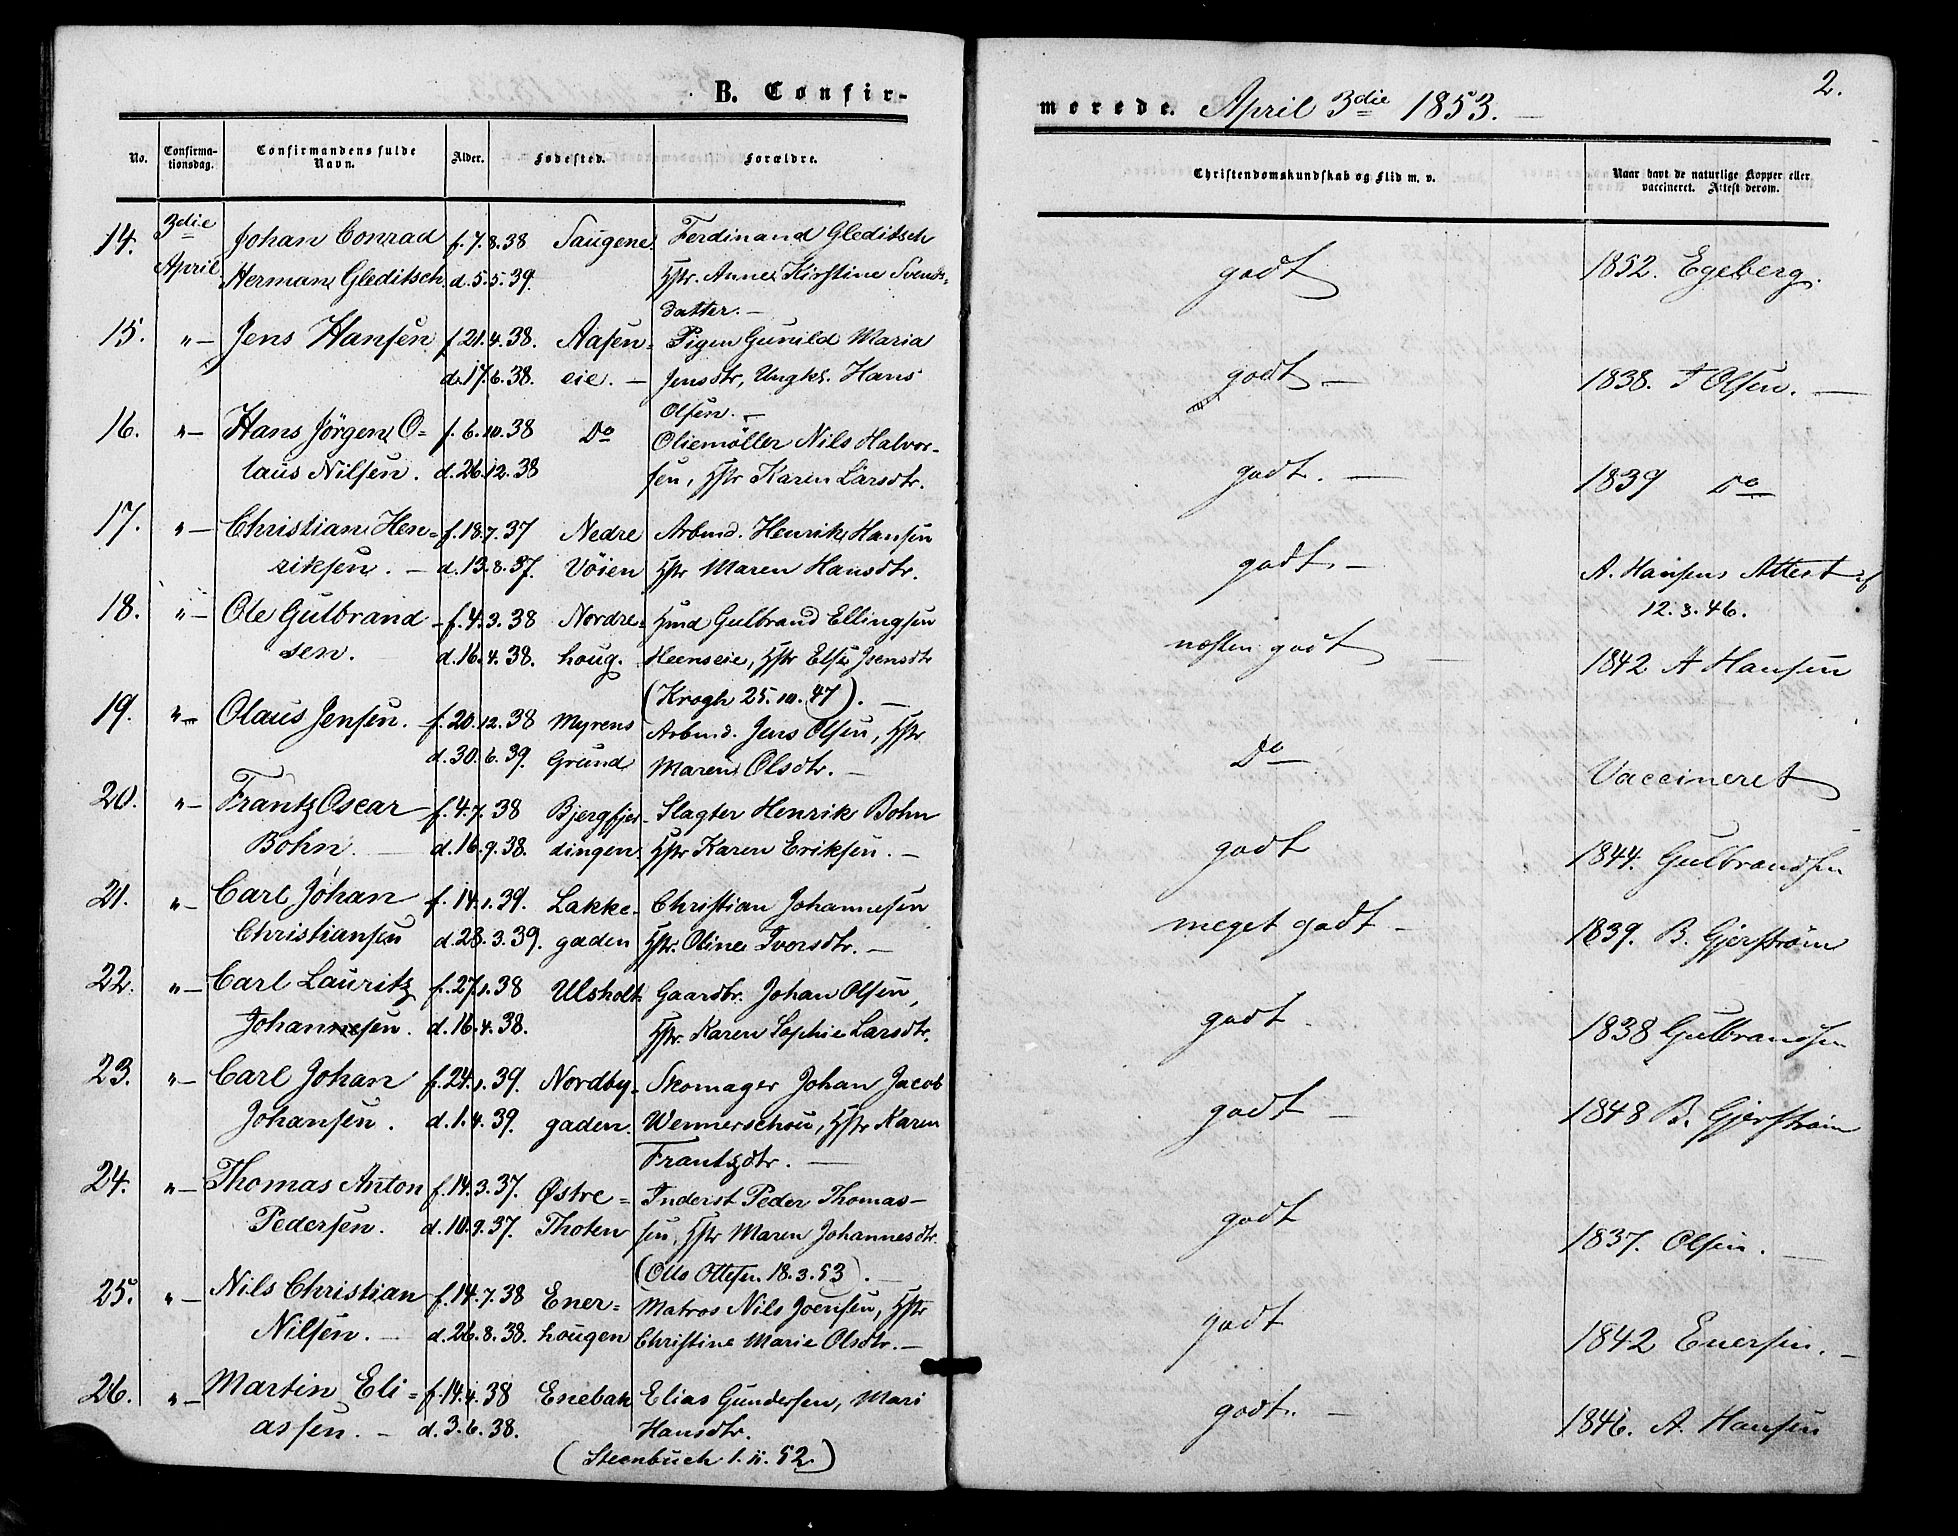 B. Confir-
morede. April 3die 1853. —
2.
No. Confirmationsdag. Confirmandens fulde Navn. Alder. Fødested. Forældre. Christendomskundskab og Flid m. v. Naar havt de naturlige Kopper eller vaccineret. Attest derom.
14. 3die Johan Conrad f. 7.8.38 Saugene Ferdinand Gleditsch godt 1852. Egeberg.
April Herman Gleditsch d. 5.5.39. Hstr. Anne Kirstine Svends-
datter. —
15. " — Jens Hansen f. 21.4.38. Aasen- Pigen Gunild Maria godt — 1838. T Olsen. —
d. 17.6.38. eie. — Jensdtr, Ungkl. Hans
Olsen. —
16. " — Hans Jörgen O- f. 6.10.38 Do Oliemøller Nils Halvor- godt. — 1839 Do
laus Nilsen. d. 26.12.38 sen, Hstr Karen Larsdtr.
17. " — Christian Hen- f. 18.7.37 Nedre Arbmd. Henrik Hansen godt — A. Hansens Attest af
riksen. — d. 13.8.37. Vöien Hstr Maren Hansdtr. 12.3.46.
18. " — Ole Gulbrand- f. 4.3.38 Nordre- Hmd Gulbrand Ellingsen næsten godt — 1842 A Hansen
sen. d. 16.4.38. houg. Heenseie, Hstr Else Jensdtr
(Krogh 25.10.47). —
19. " — Olaus Jensen. f. 20.12.38 Myrens Arbmd. Jens Olsen, Hstr Do Vaccineret
d. 30.6.39. Grund Maren Olsdtr. —
20. " — Frantz Oscar f. 4.7.38 Bjergfjer- Slagter Henrik Bohn godt 1844. Gulbrandsen
Bohn. — d. 16.9.38. dingen Hstr Karen Eriksen. —
21. " — Carl Johan f. 14.1.39. Lakke- Christian Johannesen meget godt — 1839. B. Gjerström
Christiansen d. 28.3.39. gaden Hstr. Oline Iversdtr. —
22. " — Carl Lauritz f. 27.1.38 Ulsholt Gaardbr. Johan Olsen, godt 1838 Gulbrandsen
Johannesen. d. 16.4.38. Hstr. Karen Sophie Larsdtr.
23. " — Carl Johan f. 24.1.39. Nordby- Skomager Johan Jacob godt — 1848 B. Gjerström
Johansen. d. 1.4.39. gaden. Wennerschou, Hstr Karen
Frantzdtr. —
24. " — Thomas Anton f. 14.3.37. Østre- Inderst Peder Thomas- godt 1837. Olsen. —
Pedersen. d. 10.9.37. Thoten sen, Hstr Maren Johannesdtr.
(Otto Ottesen 18.3.53). —
25. " — Nils Christian f. 14.7.38 Ener- Matros Nils Joensen, Hstr godt 1842 Enersen. —
Nilsen. — d. 26.8.38. hougen Christine Marie Olsdtr. —
26. " — Martin Eli- f. 14.4.38 Enebak Elias Gundersen, Mari godt. — 1846. A. Hansen
assen. — d. 3.6.38. Hansdtr.
(Steenbuch 1.11.52)